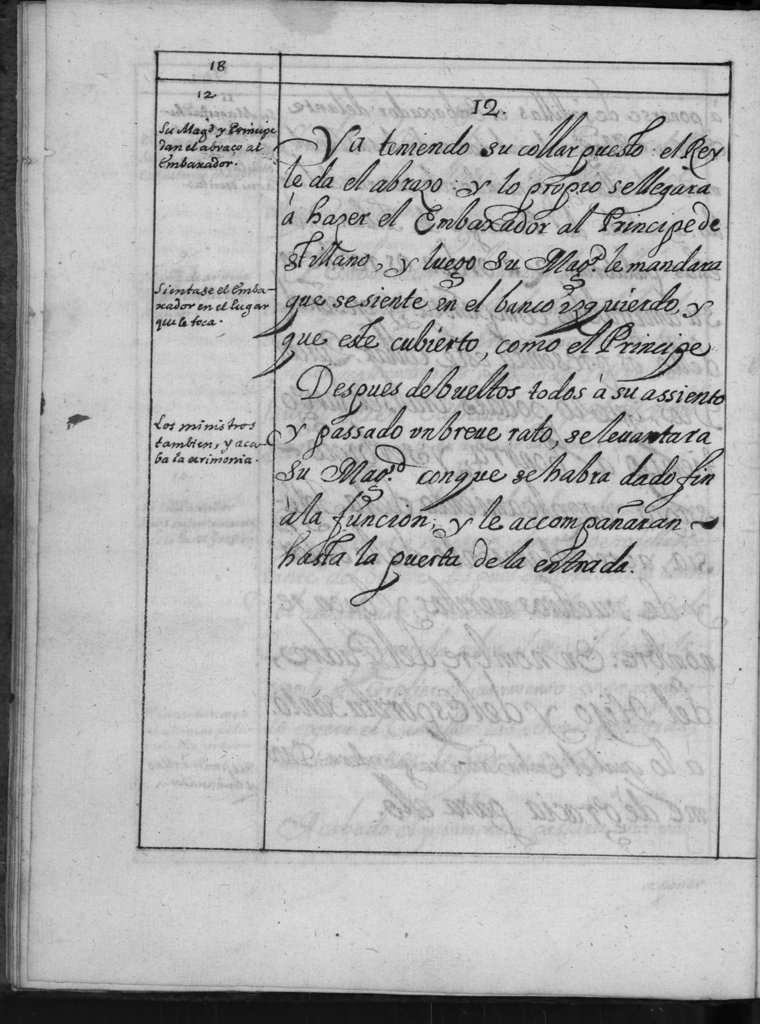 18
12
Su Magd y Principe
dan el abraço al
Embaxador.
Sientase el Emba-
xador en el lugar
que le toca.
Los ministros
tambien, y aca-
ba la cerimonia.
12.
Ya teniendo su collar puesto el Rey
le da el abrazo: y lo propio se llegara
á hazer el Embaxador al Principe de
stillano, y luego su Magd. le mandara
que se siente en el banco izquierdo, y
que este cubierto, como el Principe
Despues de bueltos todos á su assiento
y passado vn breue rato, se leuantara
su Magd. con que se habra dado fin
á la función; y le accompañaran
hasta la puerta de la entrada.